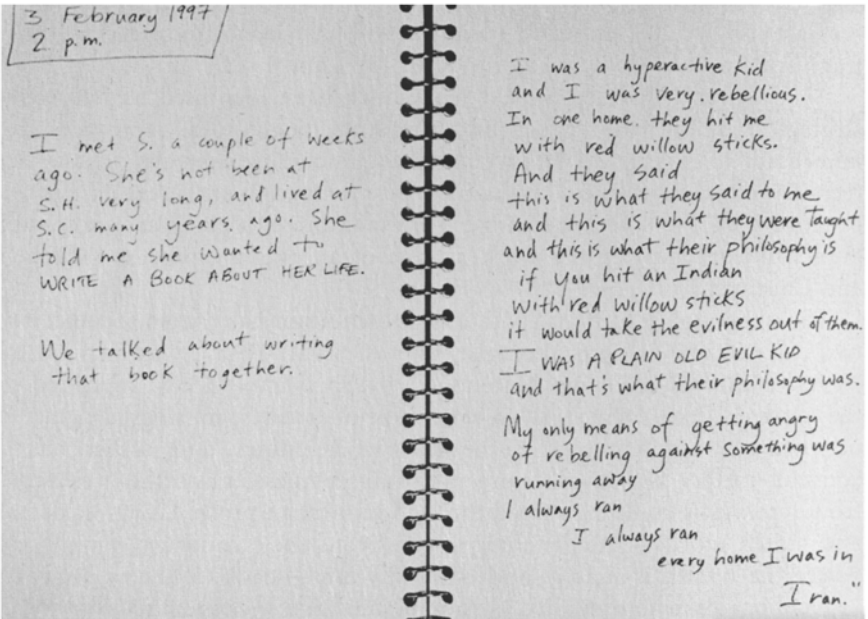 3 February 1997
2 p.m.
I met S. a couple of weeks
ago. She's not been at
S.H. very long, and lived at
S.C. many years ago. She
told me she wanted to
WRITE A BOOK ABOUT HER LIFE.
We talked about writing
that book together.
I was a hyperactive kid
and I was very rebellious.
In one home they hit me
with red willow sticks.
And they said
this is what they said to me
and this is what they were taught
and this is what their philosophy is
if you hit an Indian
with red willow sticks
it would take the evilness out of them.
I WAS A PLAIN OLD EVIL KID
and that's what their philosophy was.
My only means of getting angry
of rebelling against something was
running away
I always ran
I always ran
every home I was in
I ran."